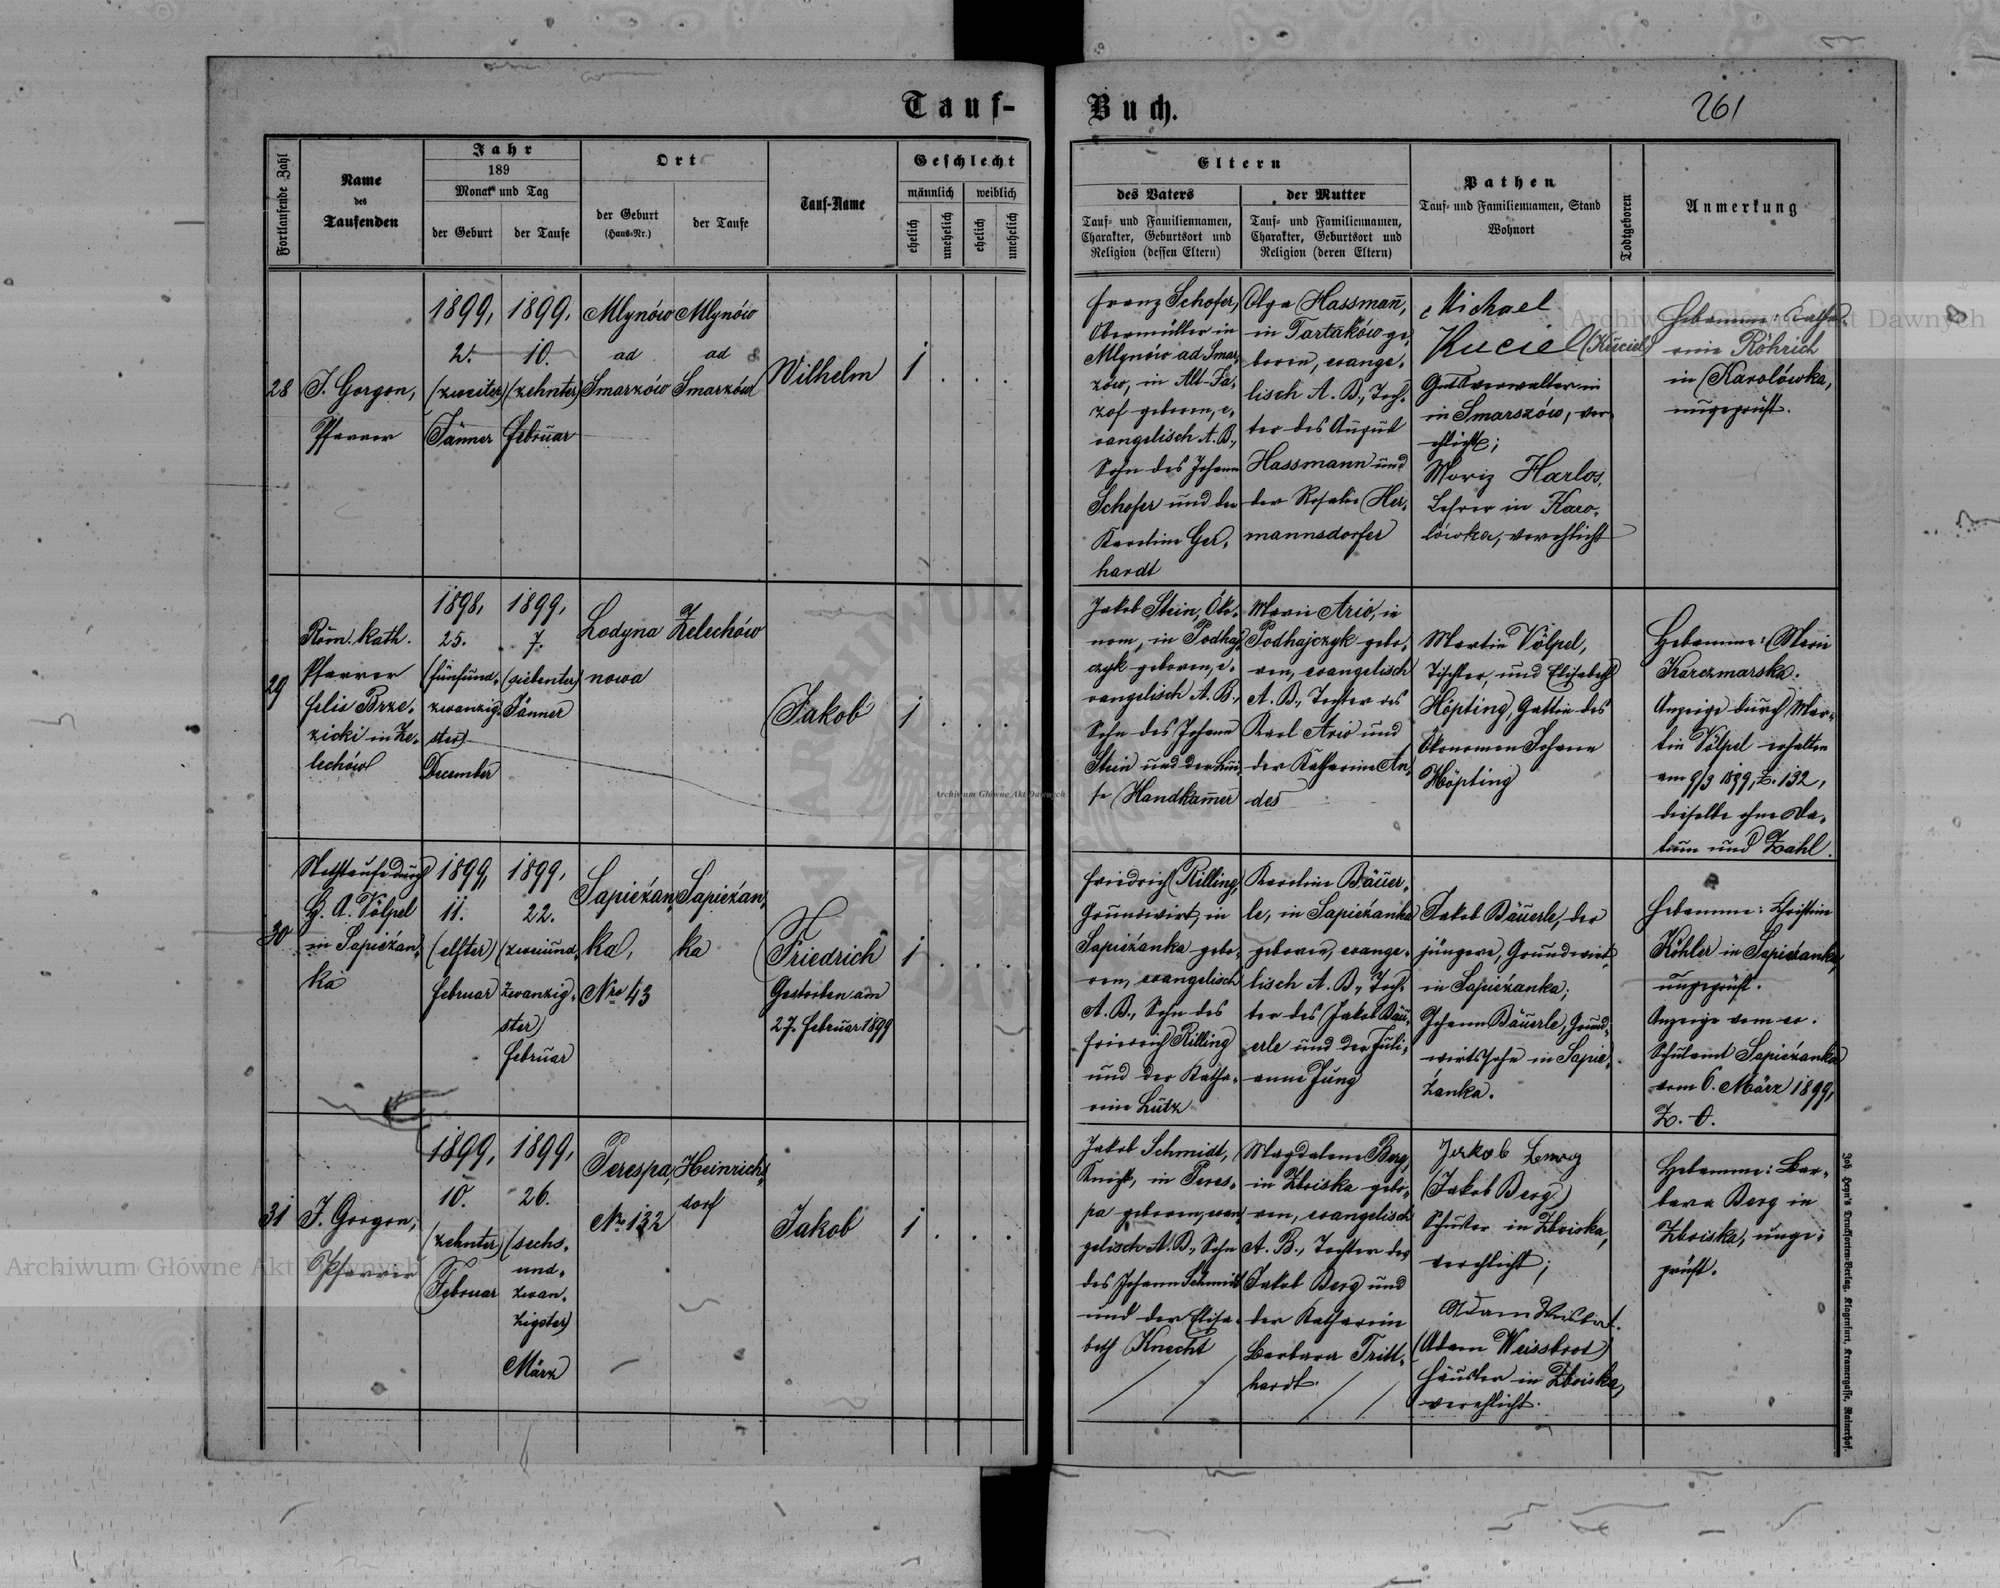 Tauf-
Buch.
261
Fortlaufende Zahl
Name
des
Taufenden
Jahr
189
Monat und Tag
der Geburt
der Taufe
Ort
der Geburt
(Haus-Nr.)
der Taufe
Tauf-Name
Geschlecht
männlich
weiblich
ehelich
unehelich
ehelich
unehelich
Eltern
des Vaters
Tauf- und Familiennamen,
Charakter, Geburtsort und
Religion (dessen Eltern)
der Mutter
Tauf- und Familiennamen,
Charakter, Geburtsort und
Religion (deren Eltern)
Pathen
Tauf- und Familiennamen, Stand
Wohnort
Todtgeboren
Anmerkung
28
J. Gorgon,
Pfarrer
1899,
2.
(zweiter)
Jänner
1899.
10.
(zehnter)
Februar
Mlynów
ad
Smarzów
Mlynów
ad
Smarzów
Wilhelm
1
Franz Schofer,
Obermüller in
Mlynów ad Smar-
zów, in Alt-Ja-
zof geboren, e-
vangelisch A. B.,
Sohn des Johann
Schofer und der
Karoline Ger-
hardt
Olga Hassmann,
in Tartaków ge-
boren, evange-
lisch A. B., Toch-
ter des August
Hassmann und
der Rosalie Her-
mannsdorfer
Michael
Kuciel (Kuciel)
Gutsverwalter in
in Smarszów, ver-
ehlicht;
Moriz Harlos,
Lehrer in Karo-
lówka, verehlicht
Hebamme: Katha-
rine Röhrich
in Karolówka,
ungeprüft.
29
Röm. kath.
Pfarrer
Felix Brze-
zicki in Że-
lechów
1898,
25.
(fünfund-
zwanzig-
ster)
December
1899,
7.
(siebenter)
Jänner
Lodyna
nowa
Żelechów
Jakob
1
Jakob Stein, Öko-
nom, in Podhaj-
czyk geboren, e-
vangelisch A. B.,
Sohn des Johann
Stein und der Lui-
se Handkamer
Marie Ario, in
Podhajczyk gebo-
ren, evangelisch
A. B., Tochter des
Karl Ario und
der Katharine An-
des
Martin Völpel,
Tischler und Elisabeth
Höpting, Gattin des
Ökonomen Johann
Höpting
Hebamme: Marie
Karczmarska.
Anzeige durch Mar-
tin Völpel erhalten
am 9/3 1899, Z. 132,
dieselbe ohne Da-
tum und Zahl.
30
Nothtaufe durch
H. A. Völpel
in Sapieżan-
ka
1899,
11.
(elfter)
Februar
1899,
22.
(zweiund-
zwanzig-
ster)
Februar
Sapieżan-
ka,
Nro 43
Sapieżan-
ka
Friedrich
Gestorben am
27. Februar 1899
1
Friedrich Rilling,
Grundwirt, in
Sapieżanka gebo-
ren, evangelisch
A. B., Sohn des
Friedrich Rilling
und der Katha-
rine Lutz
Karoline Bäuer-
le, in Sapieżanka
geboren, evange-
lisch A. B., Toch-
ter des Jakob Bäu-
erle und der Juli-
anne Jung
Jakob Bäuerle, der
jüngere, Grundwirt
in Sapieżanka;
Johann Bäuerle, Grund-
wirtssohn in Sapie-
żanka.
Hebamme: Christine
Köhler in Sapieżanka,
ungeprüft.
Anzeige vom ev.
Schulamt Sapieżanka
vom 6. März 1899,
Z. 0.
31
J. Gorgon,
Pfarrer
1899,
10.
(zehnter)
Februar
1899,
26.
(sechs-
und-
zwan-
zigster)
März
Perespa,
No 132
Heinrichs-
dorf
Jakob
1
Jakob Schmidt,
Knecht, in Peres-
pa geboren, evan-
gelisch A. B., Sohn
des Johann Schmidt
und der Elisa-
beth Knecht
Magdalena Berg,
in Zboiska gebo-
ren, evangelisch
A. B., Tochter des
Jakob Berg und
der Katharine
Barbara Tritt-
hardt.
Jakob Berg
(Jakob Berg)
Schuster in Zboiska,
verehlicht;
Adam
(Adam Weissbrot)
Häusler in Zboiska,
verehlicht.
Hebamme: Bar-
bara Berg in
Zboiska, unge-
prüft.
Joh. Heyn's Drucksorten-Verlag, Klagenfurt, Kramergasse, Rainerhof.
Archiwum Główne Akt Dawnych
Archiwum Główne Akt Dawnych
Archiwum Główne Akt Dawnych